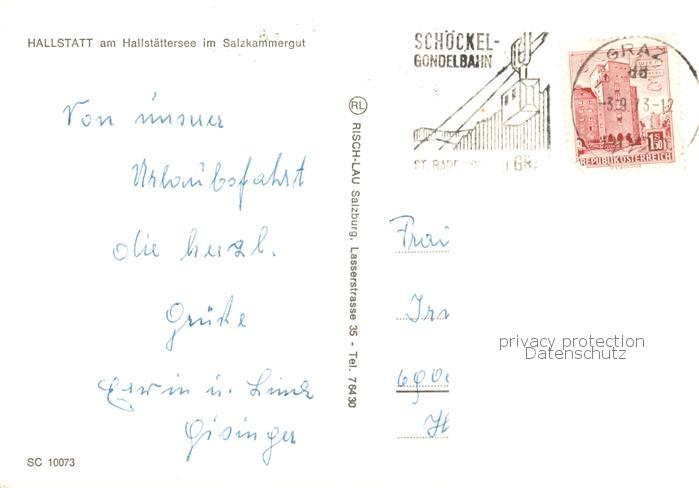 HALLSTATT am Hallstättersee im Salzkammergut
Von unsrer
Urlaubsfahrt
die herzl.
Grüße
Erwin u. Linde
Gisinger
SC 10073
RL RISCH-LAU Salzburg, Lasserstrasse 35 - Tel. 76430
SCHÖCKEL-
GONDELBAHN
GRAZ
-3.9.73-12
1.50
REPUBLIK ÖSTERREICH
Frau
privacy protection
Datenschutz